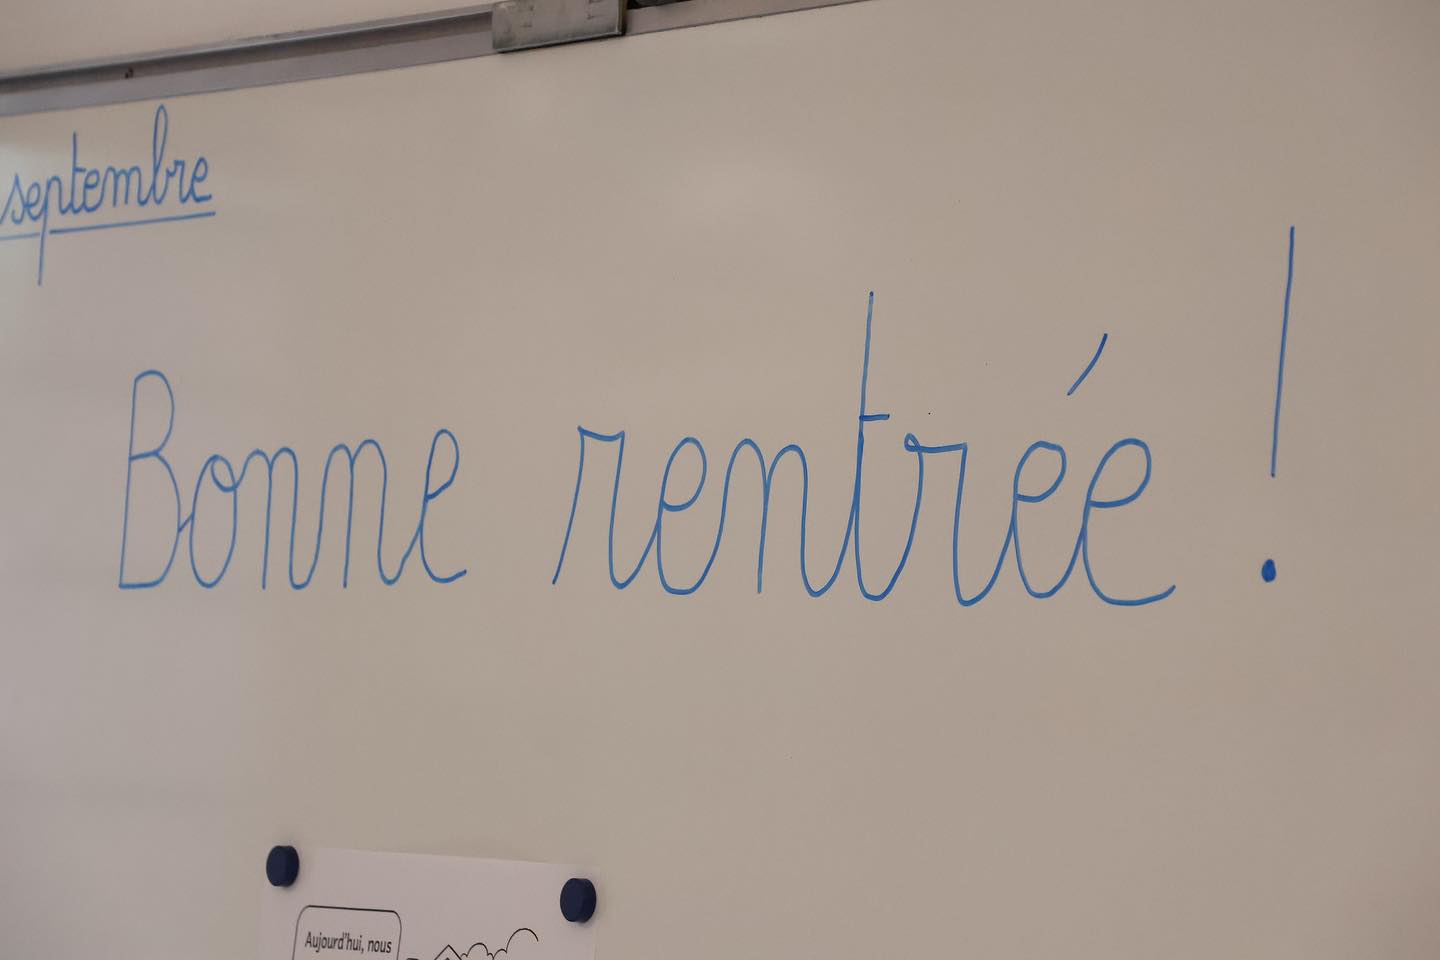 septembre
Bonne rentrée !
Aujourd'hui, nous